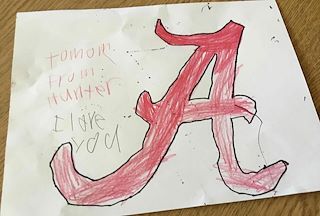 tomom
from
Hunter
I love
you
A